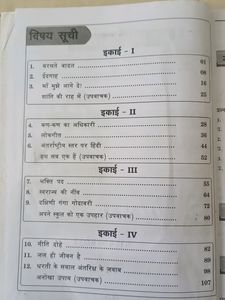 विषय सूची
इकाई - I
1. बरसते बादल 01
2. ईदगाह 08
3. माँ मुझे आने दे! 16
शांति की राह में (उपवाचक) 25
इकाई - II
4. कण-कण का अधिकारी 28
5. लोकगीत 36
6. अंतर्राष्ट्रीय स्तर पर हिंदी 44
हम सब एक हैं (उपवाचक) 52
इकाई - III
7. भक्ति पद 55
8. स्वराज्य की नींव 64
9. दक्षिणी गंगा गोदावरी 72
अपने स्कूल को एक उपहार (उपवाचक) 80
इकाई - IV
10. नीति दोहे 82
11. जल ही जीवन है 89
12. धरती के सवाल अंतरिक्ष के जवाब 98
अनोखा उपाय (उपवाचक) 107